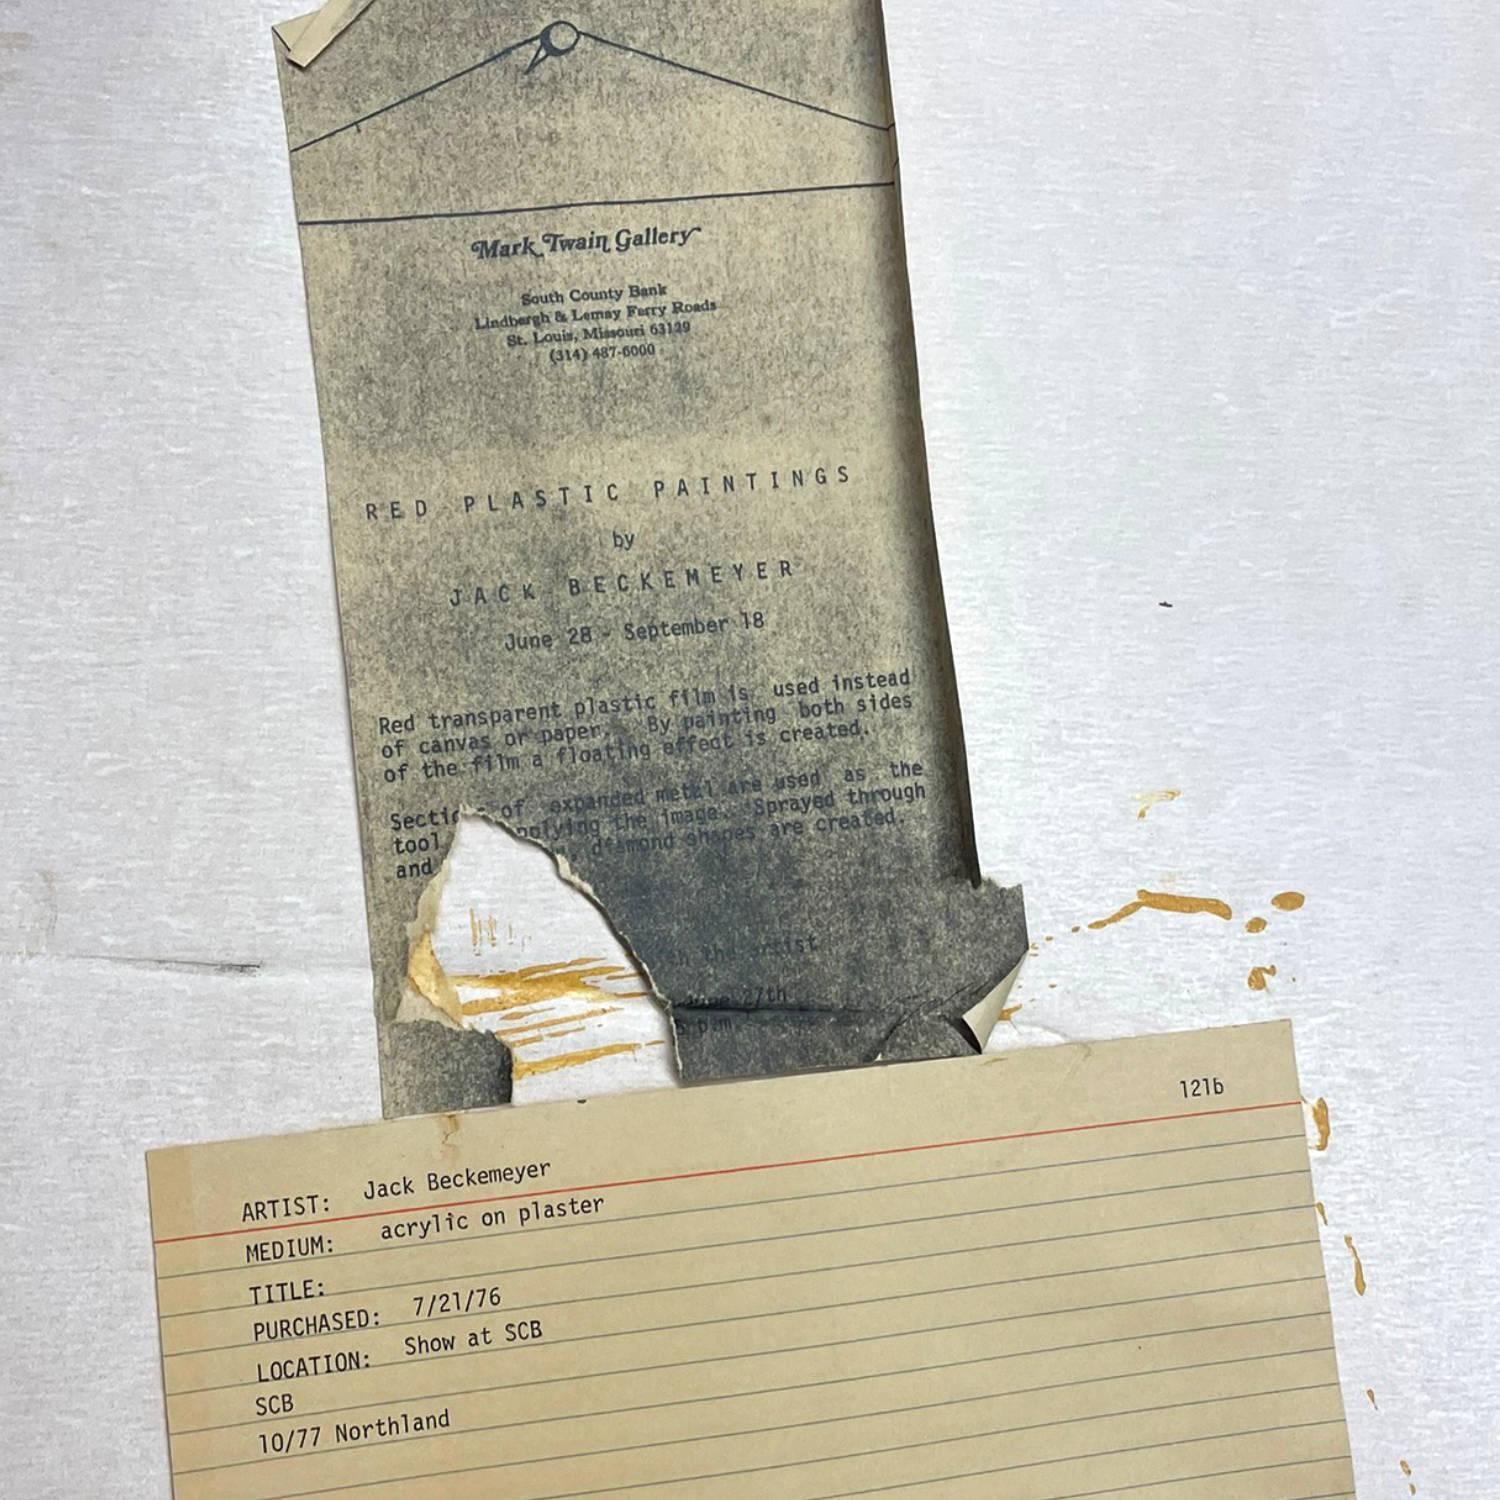 Mark Twain Gallery
South County Bank
Lindbergh & Lemay Ferry Roads
St. Louis, Missouri 63129
(314) 487-6000
RED PLASTIC PAINTINGS
by
JACK BECKEMEYER
June 28 - September 18
Red transparent plastic film is used instead
of canvas or paper. By painting both sides
of the film a floating effect is created.
Sectio s of expanded metal are used as the
tool pplying the image. Sprayed through
and diamond shapes are created.
th the artist
June 27th
p.m.
1216
ARTIST: Jack Beckemeyer
MEDIUM: acrylic on plaster
TITLE:
PURCHASED: 7/21/76
LOCATION: Show at SCB
SCB
10/77 Northland